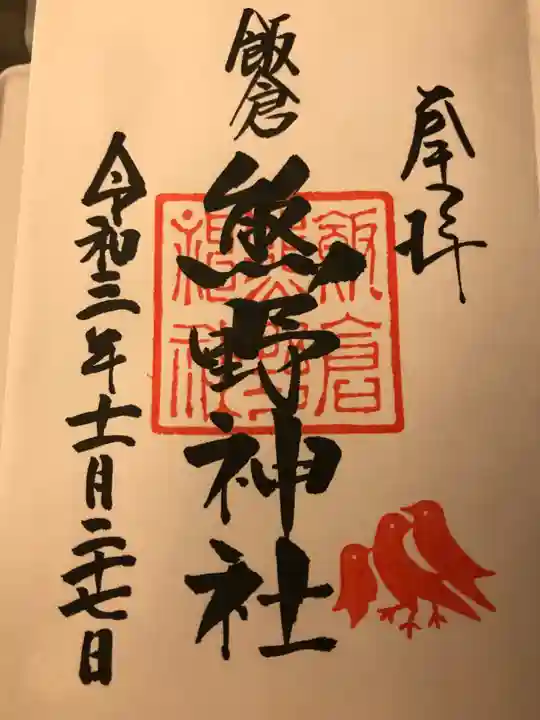 奉拝
飯倉
熊野神社
飯倉
熊野
神社
令和三年十一月二十七日